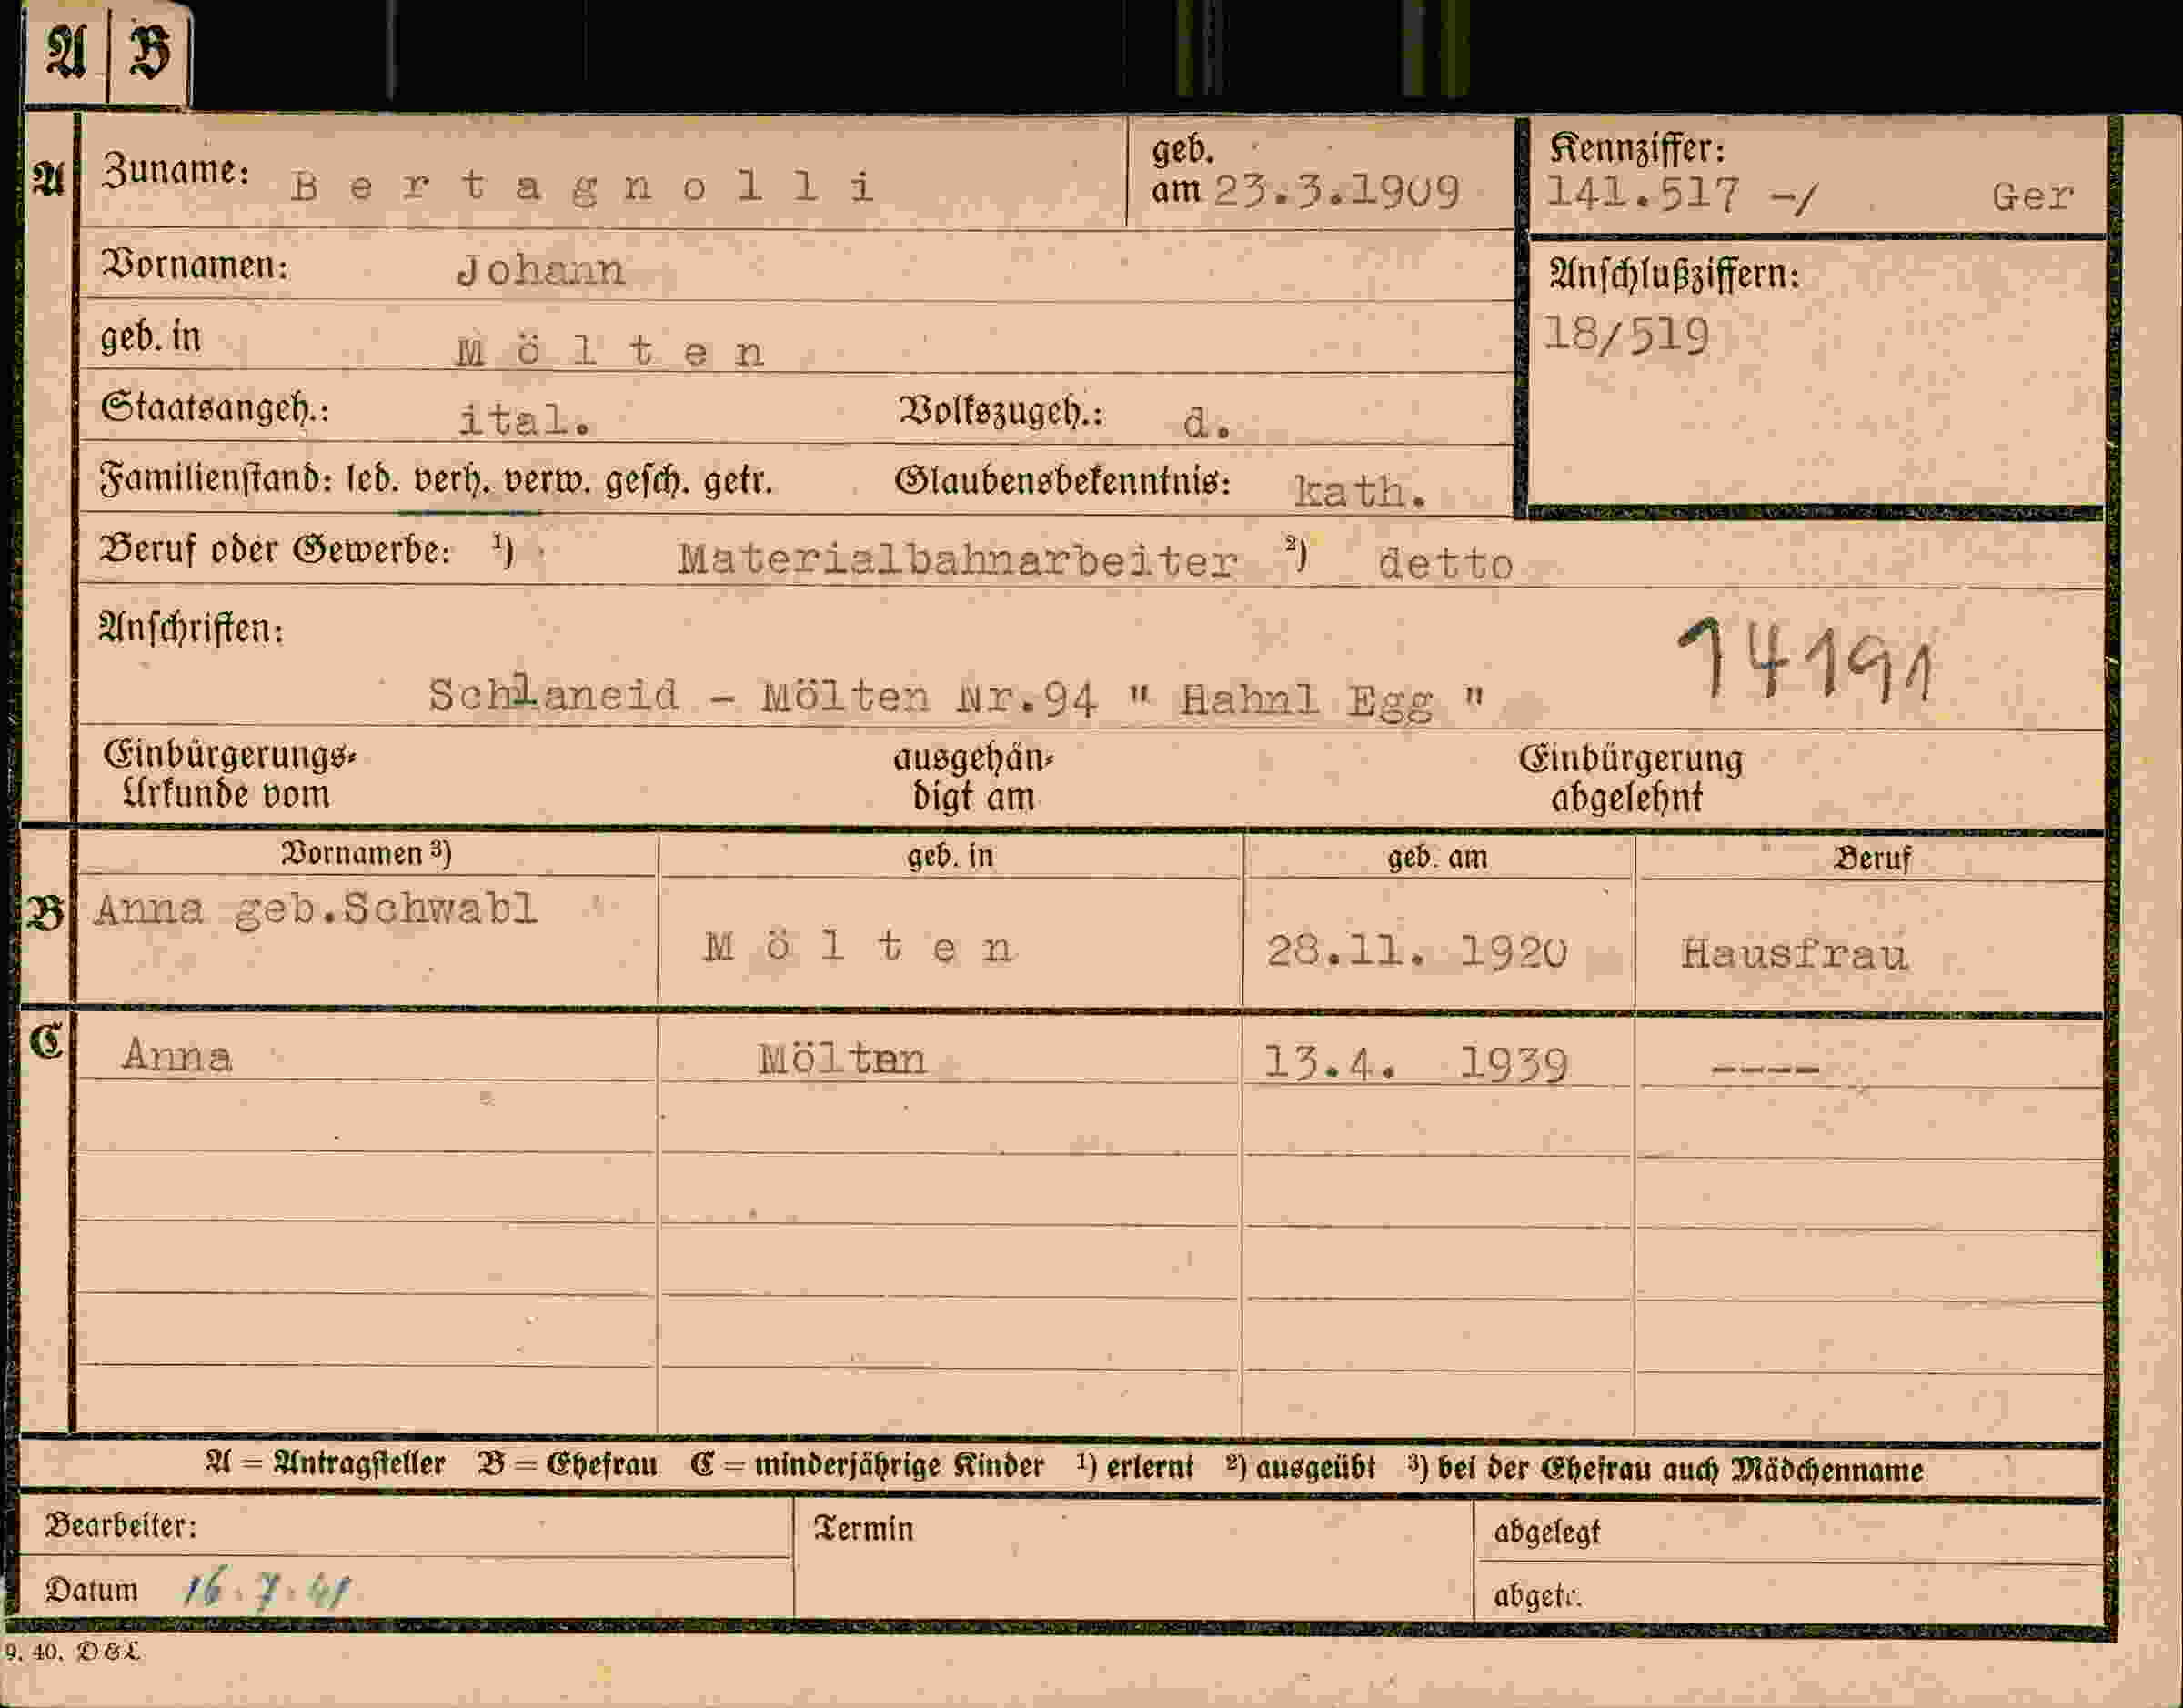 A | B
A Zuname: Bertagnolli geb. am 23.3.1909 Kennziffer: 141.517 -/ Ger
Vornamen: Johann Anschlußziffern:
geb. in Mölten 18/519
Staatsangeh.: ital. Volkszugeh.: d.
Familienstand: led. verh. verw. gesch. getr. Glaubensbekenntnis: kath.
Beruf oder Gewerbe: ¹) Materialbahnarbeiter ²) detto
Anschriften: 14191
Schlaneid - Mölten Nr.94 " Hahnl Egg "
Einbürgerungs- ausgehän- Einbürgerung
Urkunde vom digt am abgelehnt
Vornamen ³) geb. in geb. am Beruf
B Anna geb.Schwabl Mölten 28.11. 1920 Hausfrau
C Anna Mölten 13.4. 1939 ----
A = Antragsteller B = Ehefrau C = minderjährige Kinder ¹) erlernt ²) ausgeübt ³) bei der Ehefrau auch Mädchenname
Bearbeiter: Termin abgelegt
Datum 16.7.41 abgetr.
9. 40. D&L